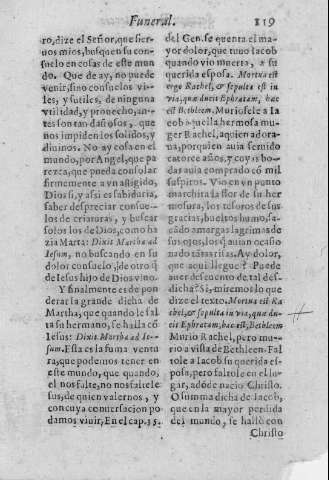 Funeral. 119
ro, dize el Señor, que sier-
uos mios, busquen su con-
suelo en cosas de este mun
do. Que de ay, no puede
venir, sino consuelos vi-
les, y futiles, de ninguna
vtilidad, y prouecho, an-
tes son tan dañosos, que
nos impiden los solidos, y
diuinos. No ay cosa en el
mundo, por Angel, que pa
rezca, que pueda consolar
firmemente a vn afligido,
Dios si, y assi es sabiduria,
saber despreciar consue-
los de criaturas, y buscar
solos los de Dios, como ha
zia Marta: Dixit Martha ad
Iesum, no buscando en su
dolor consuelo, de otro q̃
de Iesus hijo de Dios viuo.
Y finalmente es de pon
derar la grande dicha de
Martha, que quando le fal
ta su hermano, se halla cõ
Iesus: Dixit Martha ad Ie-
sum. Esta es la suma ventu
ra, que podemos tener en
este mundo, que quando,
el nos falte, no nos falte Ie
sus, de quien valernos, y
con cuya conuersacion po
damos viuir, En el cap. 35.
del Gen. se quenta el ma-
yor dolor, que tuuo Iacob
quando vio muerta, a su
querida esposa. Mortua est
ergo Rachel, & sepulta est in
via, quæ ducit Ephratam, hæc
est Bethleem. Muriosele a Ia
cob aquella hermosa mu-
ger Rachel, a quien adora-
ua, por quien auia seruido
catorce años, y cuyas bo-
das auia comprado cõ mil
suspiros. Vio en vn punto
marchita la flor de su her
mosura, los tesoros de sus
gracias, bueltos humo, sa-
cãdo amargas lagrimas de
sus ojos, los q̃ auian ocasio
nado tãtas risas. Ay dolor,
que aqui llegue? Puede
auer descuento de tal des-
dicha? Si, miremos lo que
dize el texto, Mortua est Ra
chel, & sepulta in via, quæ du-
cit Ephratam, hæc est, Bethleem
Murio Rachel, pero mu-
rio a vista de Bethleem. Fal
tole a Iacob su querida es-
posa, pero faltole en el lu-
gar, adõde nacio Christo.
O suma dicha de Iacob,
que en la mayor perdida
del mundo, se hallò con
Christo